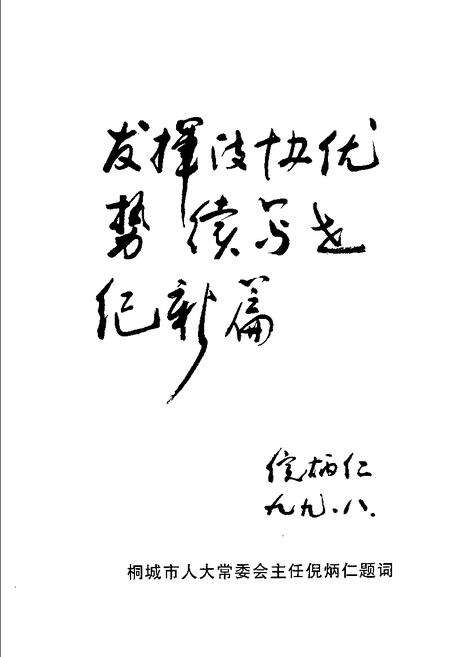 发挥政协优
势 续写世
纪新篇
倪炳仁
九九.八.
桐城市人大常委会主任倪炳仁题词